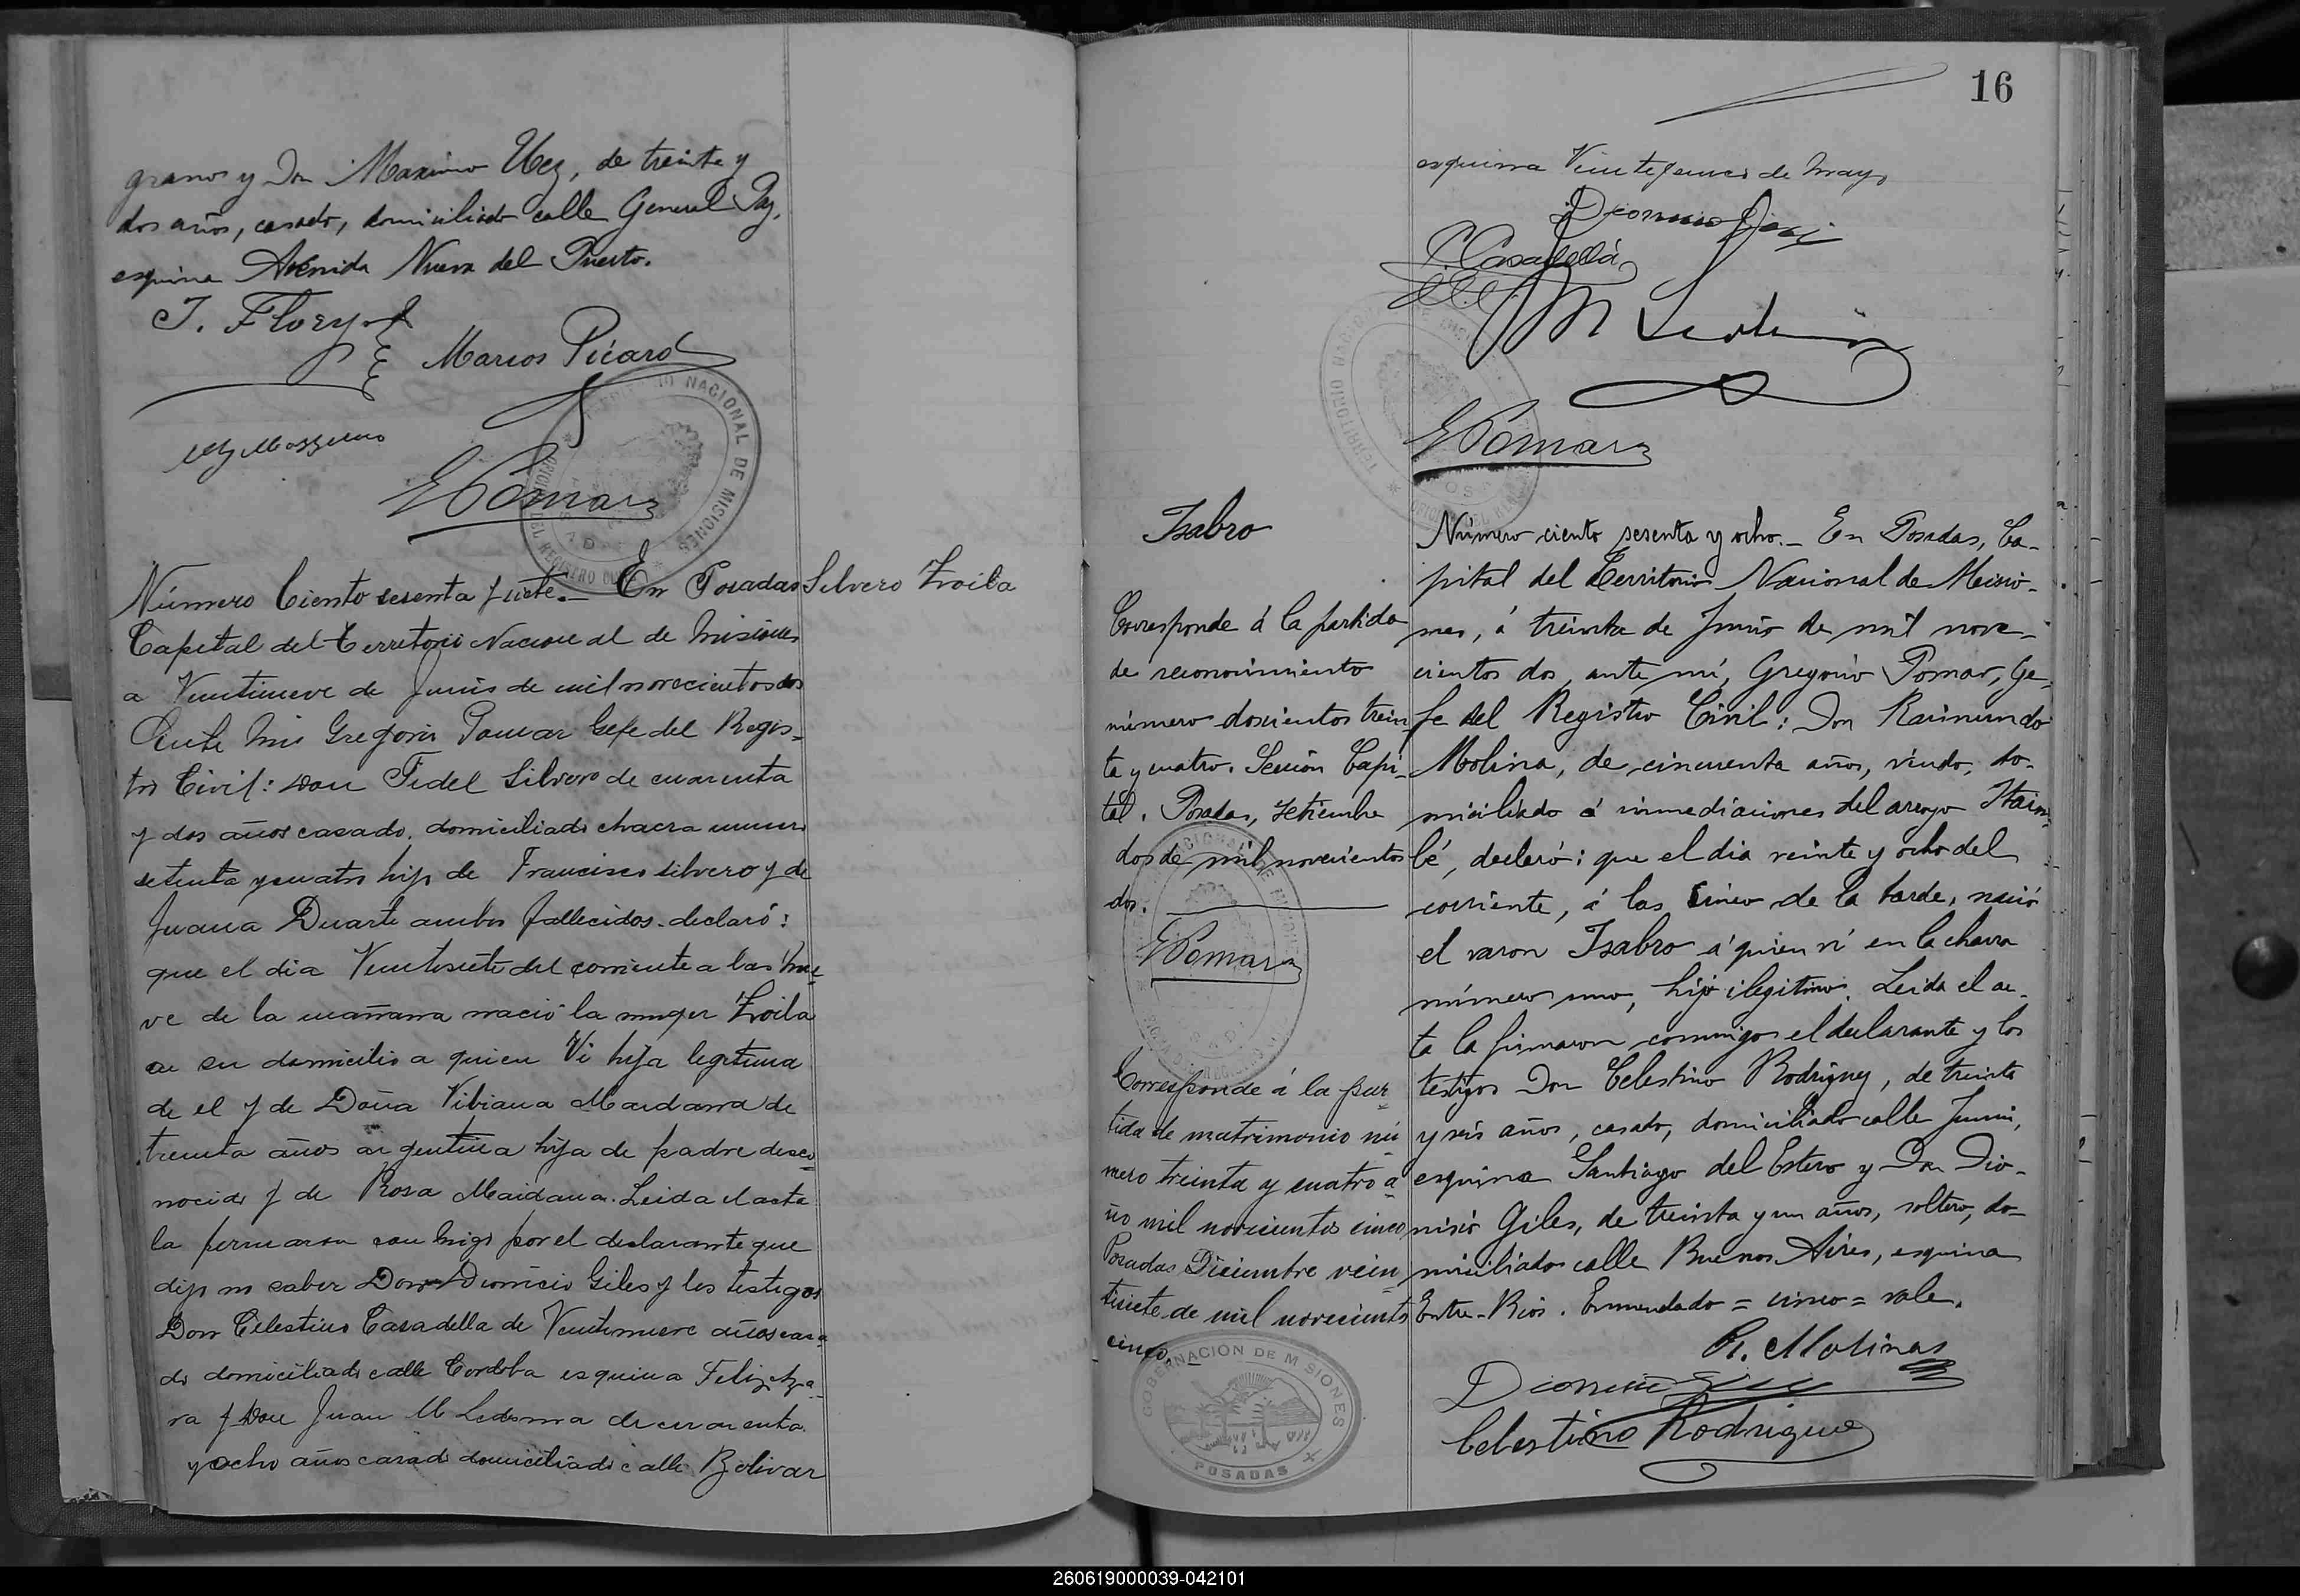 granos y Don Maximo Uez, de treinta y
dos años, casado, domiciliado calle General Paz,
esquina Avenida Nueva del Puerto.
J. Flory
Marcos Picard
NACIONAL DE MISIONES
EPomar
Número Ciento sesenta y siete._ En Posadas
Silvero Zoila
Capital del Territorio Nacional de Misiones
a Veintinueve de Junio de mil novecientos dos
Ante Mi Gregorio Pomar Gefe del Regis-
tro Civil: Don Fidel Silvero de cuarenta
y dos años casado, domiciliado chacra numero
setenta y cuatro hijo de Francisco Silvero y de
Juana Duarte ambos fallecidos. declaró:
que el dia Veintisiete del corriente a las nue-
ve de la mañana nació la muger Zoila
en su domicilio a quien Vi hija legitima
de el y de Doña Vibiana Maidana de
treinta años argentina hija de padre desco-
nocido y de Rosa Maidana. Leida el acta
la firmaron conmigo por el declarante que
dijo no saber Don Dionicio Giles y los testigos
Don Celestino Casadella de Veintinueve años casa-
do domiciliado calle Cordoba esquina Felix Aza-
ra y Don Juan M Ledesma de cuarenta
y ocho años casado domiciliado calle Bolivar
16
esquina Veinticinco de Mayo
C Casadellá
M Ledesma
EPomar
Isabro
Corresponde á la partida
de reconocimiento
número doscientos trein-
ta y cuatro. Sección Capi-
tal. Posadas, Setiembre
dos de mil novecientos
dos.
EPomar
Corresponde á la par
tida de matrimonio nú
mero treinta y cuatro a
ño mil novecientos cinco
Posadas Diciembre vein
tisiete de mil novecientos
cinco._
GOBERNACIÓN DE MISIONES
POSADAS
Número ciento sesenta y ocho._ En Posadas, Ca-
pital del Territorio Nacional de Misio-
nes, á treinta de Junio de mil nove-
cientos dos, ante mí, Gregorio Pomar, Ge-
fe del Registro Civil: Don Raimundo
Molina, de cincuenta años, viudo, do-
miciliado á inmediaciones del arroyo Itaim-
bé, declaró: que el dia veinte y ocho del
corriente, á las cinco de la tarde, nació
el varon Isabro á quien ví en la chacra
número uno, hijo ilegitimo. Leida el ac-
ta la firmaron conmigo el declarante y los
testigos Don Celestino Rodriguez, de treinta
y seis años, casado, domiciliado calle Junin,
esquina Santiago del Estero y Don Dio-
nisio Giles, de treinta y un años, soltero, do-
miciliado calle Buenos Aires, esquina
Entre-Rios. Enmendado = cinco = vale.
R. Molinas
Celestino Rodriguez
260619000039-042101